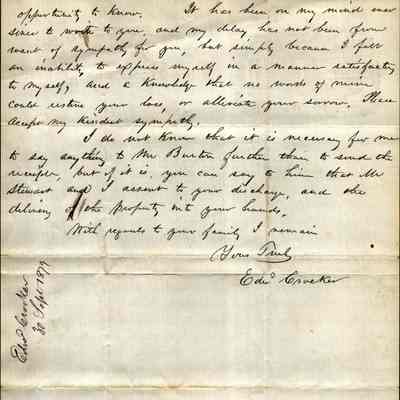 opportunity to know. It has been on my mind ever
since to write to you, and my delay has not been from
want of sympathy for you, but simply because I felt
an inability to express myself in a manner satisfactory
to myself, and a knowledge that no words of mine
could restore your loss, or alleviate your sorrow. Please
accept my kindest sympathy.
I do not know that it is necessary for me
to say anything to Mr Burton further than to send the
receipts, but if it is, you can say to him that Mr
Stewart and I assent to your discharge, and the
delivery of the property into your hands.
With regards to your family I remain
Yours Truly
Edwd Crocker
Edwd Crocker
30 Sept 1879